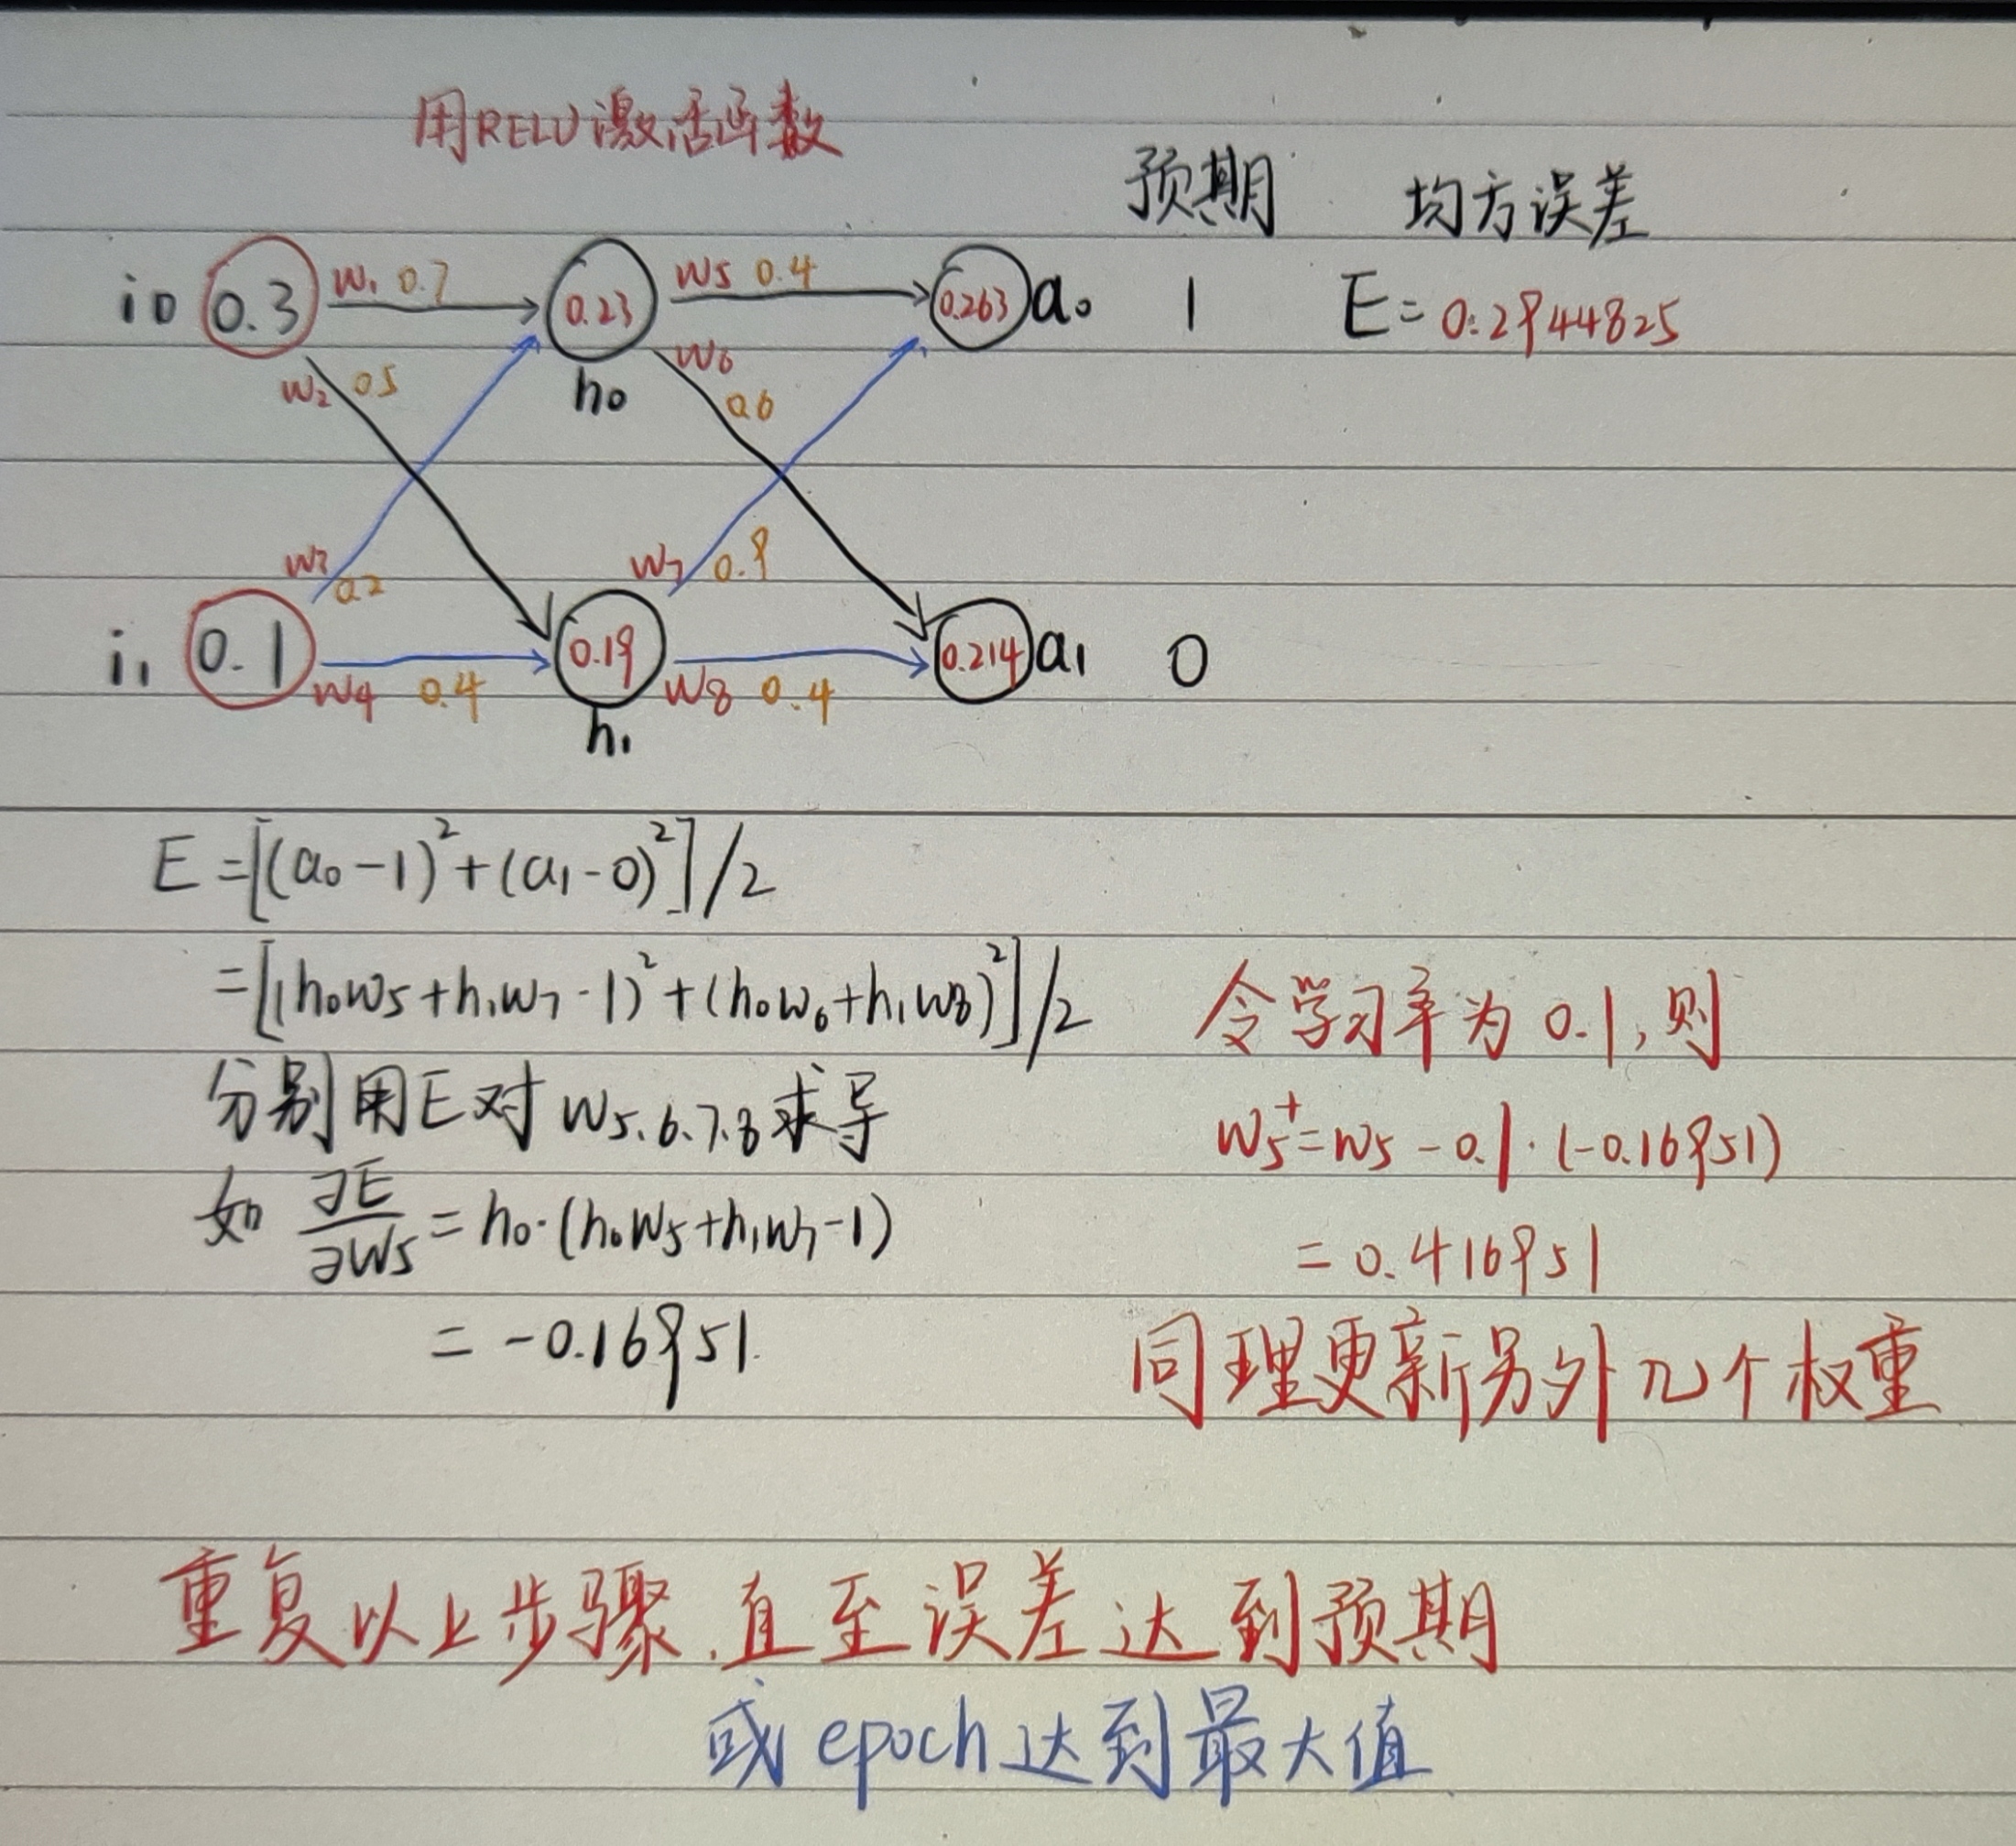 用RELU激活函数
预期 均方误差
i0 0.3 w1 0.7 0.23 w5 0.4 0.263 a0 1 E=0.2944825
w2 0.5 h0 w6 0.6
w3 0.2 w7 0.9
i1 0.1 w4 0.4 0.19 w8 0.4 0.214 a1 0
h1
E=[(a0-1)²+(a1-0)²]/2
=[(h0w5+h1w7-1)²+(h0w6+h1w8)²]/2
分别用E对w5.6.7.8求导
如 ∂E/∂w5=h0·(h0w5+h1w7-1)
=-0.16951
令学习率为0.1,则
w5⁺=w5-0.1·(-0.16951)
=0.416951
同理更新另外几个权重
重复以上步骤.直至误差达到预期
或epoch达到最大值